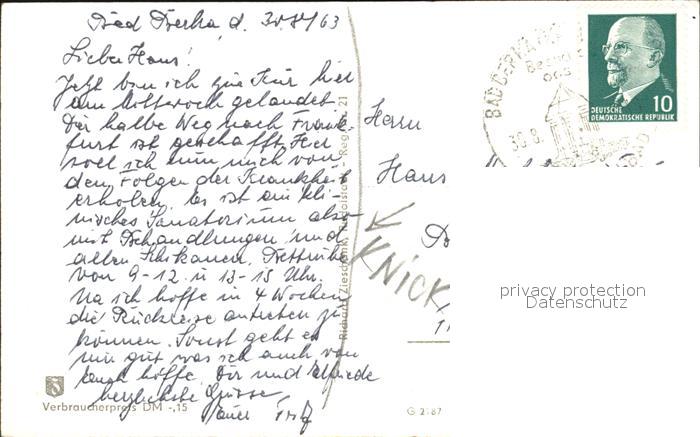 Bad Berka, d. 30.8./63
Lieber Hans!
Jetzt bin ich zur Kur hier
am Mittwoch gelandet.
Der halbe Weg nach Frank-
furt ist geschafft. Hier
soll ich nun mich von
den Folgen der Krankheit
erholen. Es ist ein kli-
nisches Sanatorium also
mit Behandlungen und
allen Schikanen. Bettruhe
von 9-12 u 13-15 Uhr.
Na ich hoffe in 4 Wochen
die Rückreise antreten zu
können. Sonst geht es
mir gut was ich auch von
euch hoffe. Dir und Elfriede
herzlichste Grüsse
Euer
Verbraucherpreis DM -,15
Richard Zieschank, Rudolstadt - Reg. 21
G 2187
Herrn
Hans
KNICK
BAD BERKA
30.8.
DEUTSCHE
DEMOKRATISCHE REPUBLIK
10
privacy protection
Datenschutz